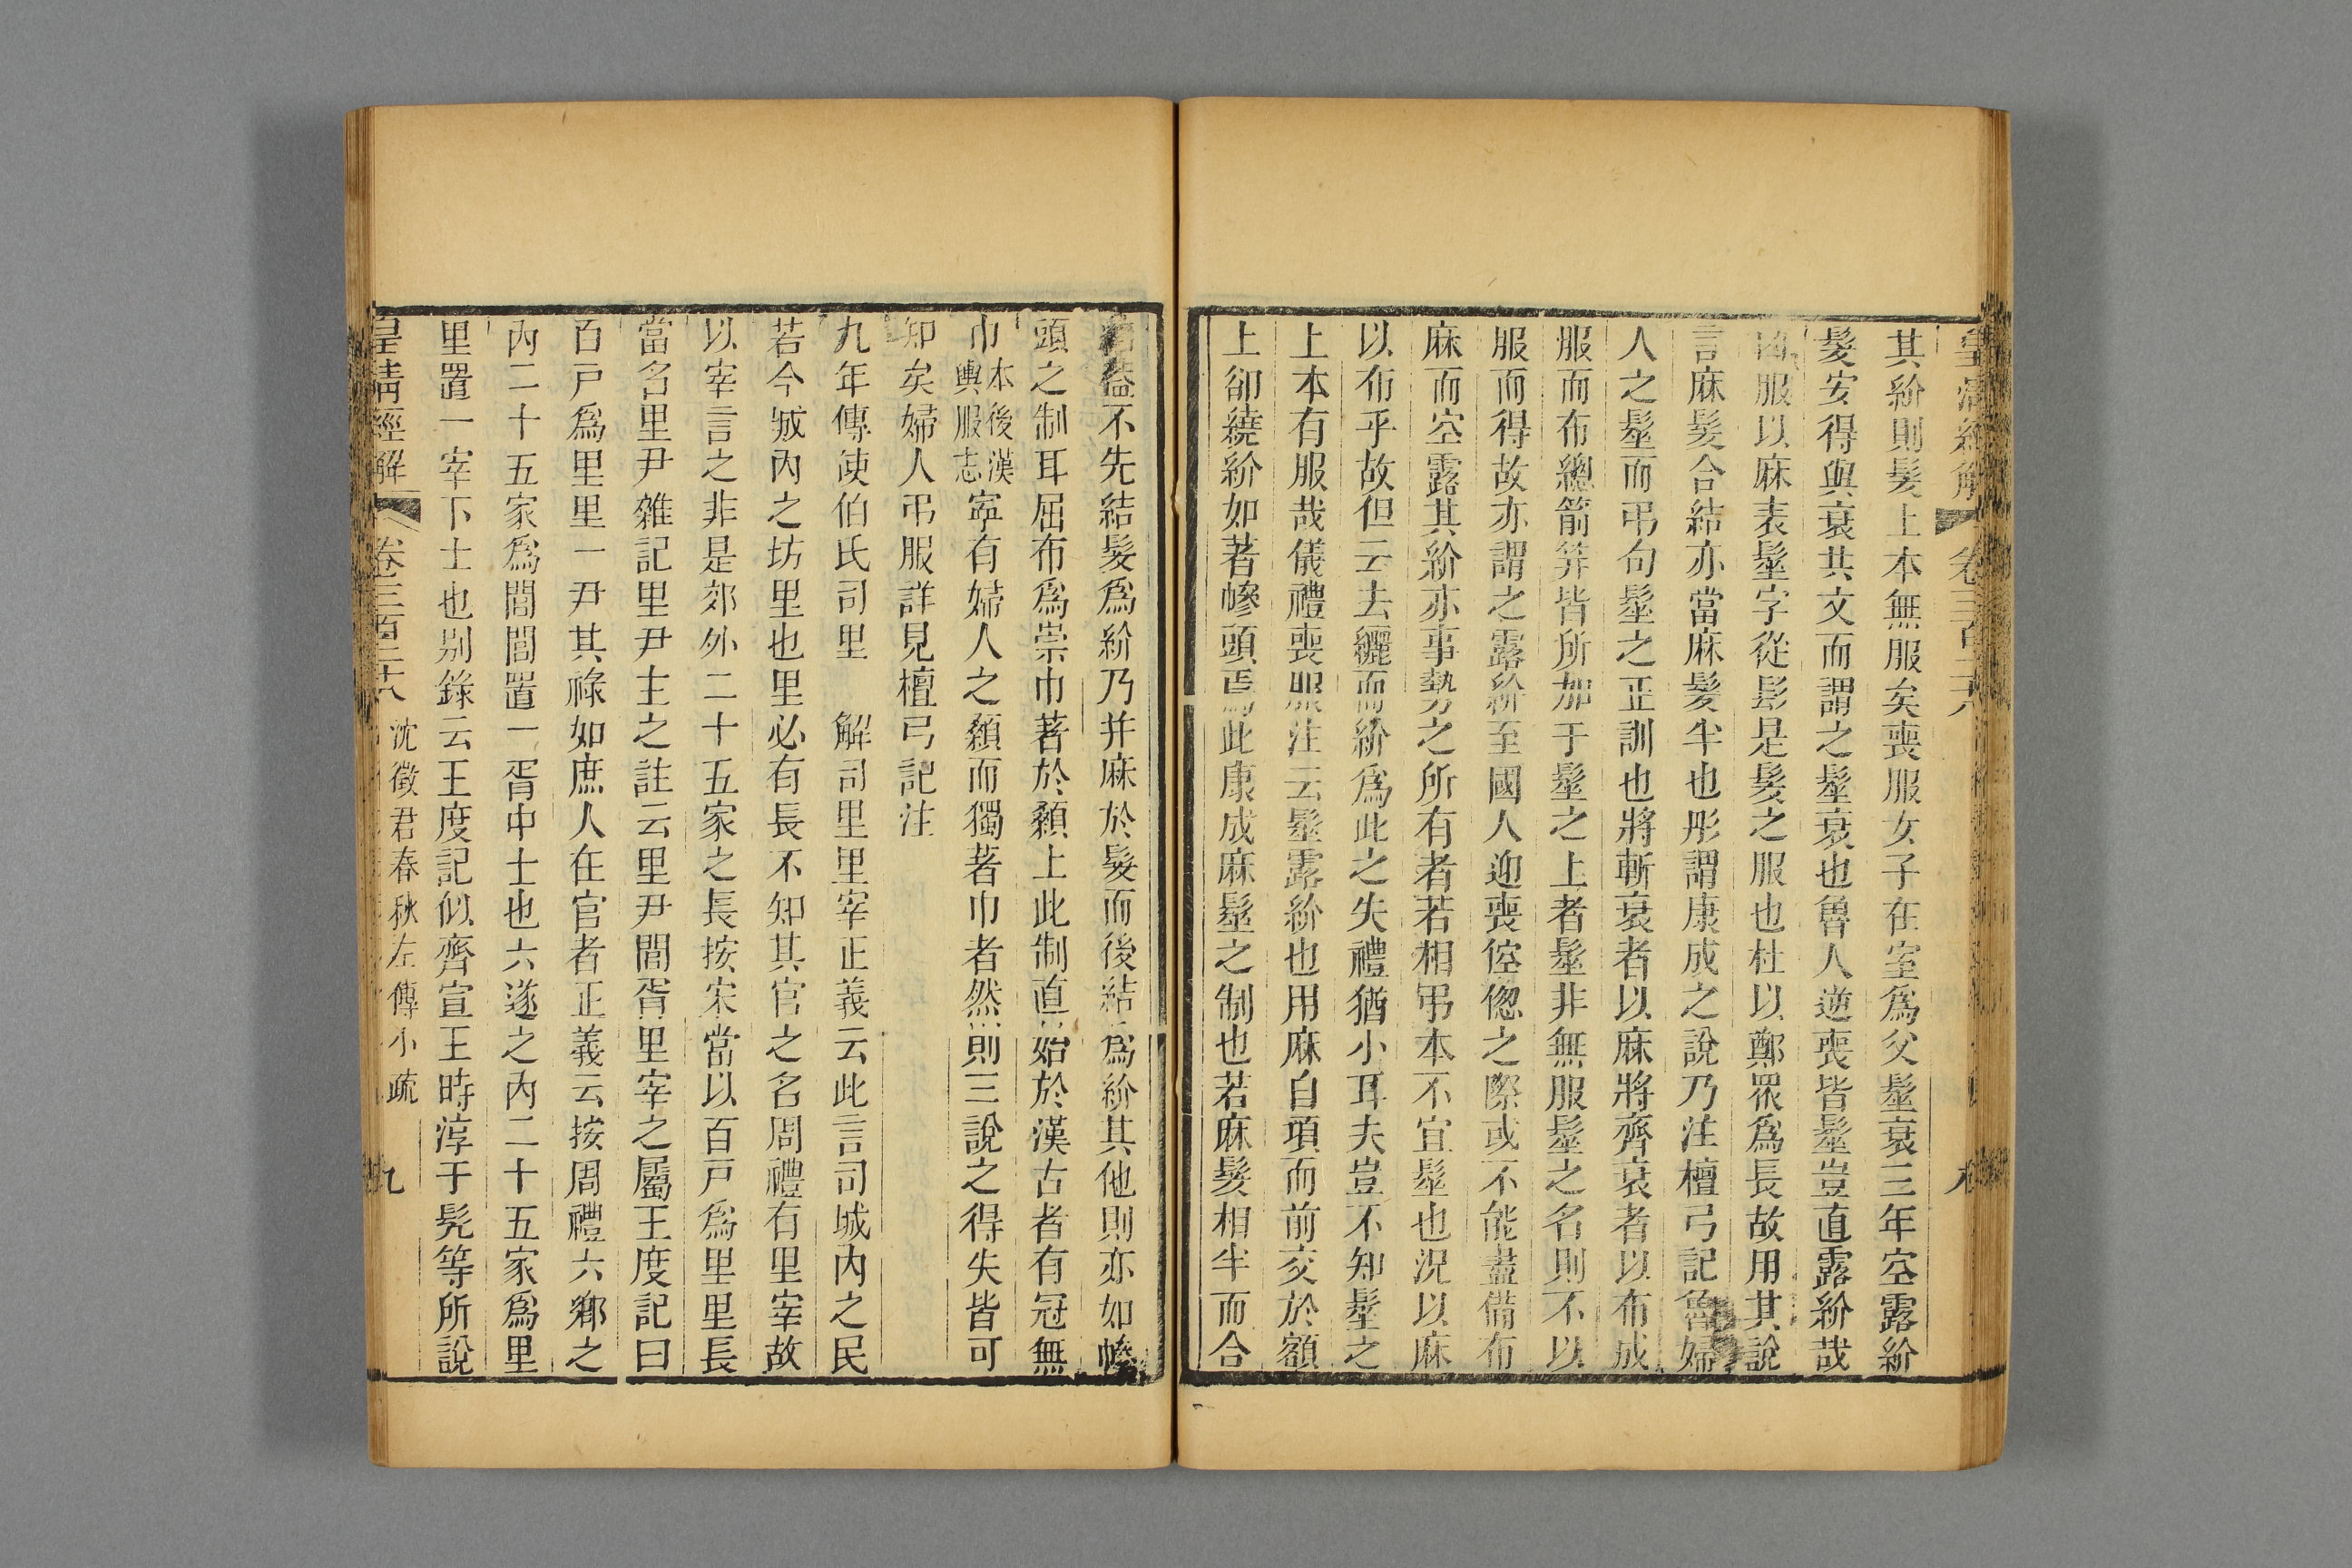 皇清經解
卷三百二十八
其紒則髮上本無服矣喪服女子在室爲父髽衰三年空露紒
髮安得與衰共文而謂之髽衰也魯人逆喪皆髽豈直露紒哉
服以麻表髽字從髟是髮之服也杜以鄭眾爲長故用其說
言麻髮合結亦當麻髮半也彤謂康成之說乃注檀弓記魯婦
人之髽而弔句髽之正訓也將斬衰者以麻將齊衰者以布成
服而布總箭筓皆所加于髽之上者髽非無服髽之名則不以
服而得故亦謂之露紒至國人迎喪倥傯之際或不能盡備布
麻而空露其紒亦事勢之所有者若相弔本不宜髽也況以麻
以布乎故但云去纚而紒爲此之失禮猶小耳夫豈不知髽之
上本有服哉儀禮喪服注云髽露紒也用麻自項而前交於額
上卻繞紒如著幓頭焉此康成麻髽之制也若麻髮相半而合
結蓋不先結髮爲紒乃并麻於髮而後結爲紒其他則亦如幓
頭之制耳屈布爲崇巾著於纇上此制直始於漢古者有冠無
巾本後漢輿服志寧有婦人之纇而獨著巾者然則三說之得失皆可
知矣婦人弔服詳見檀弓記注
九年傳使伯氏司里 解司里里宰正義云此言司城內之民
若今城內之坊里也里必有長不知其官之名周禮有里宰故
以宰言之非是郊外二十五家之長按宋當以百戸爲里里長
當名里尹雜記里尹主之註云里尹閭胥里宰之屬王度記曰
百戸爲里里一尹其祿如庶人在官者正義云按周禮六鄉之
內二十五家爲閭閭置一胥中士也六遂之內二十五家爲里
里置一宰下士也别錄云王度記似齊宣王時淳于髡等所說
皇清經解 卷三百二十八 沈徵君春秋左傳小疏 九